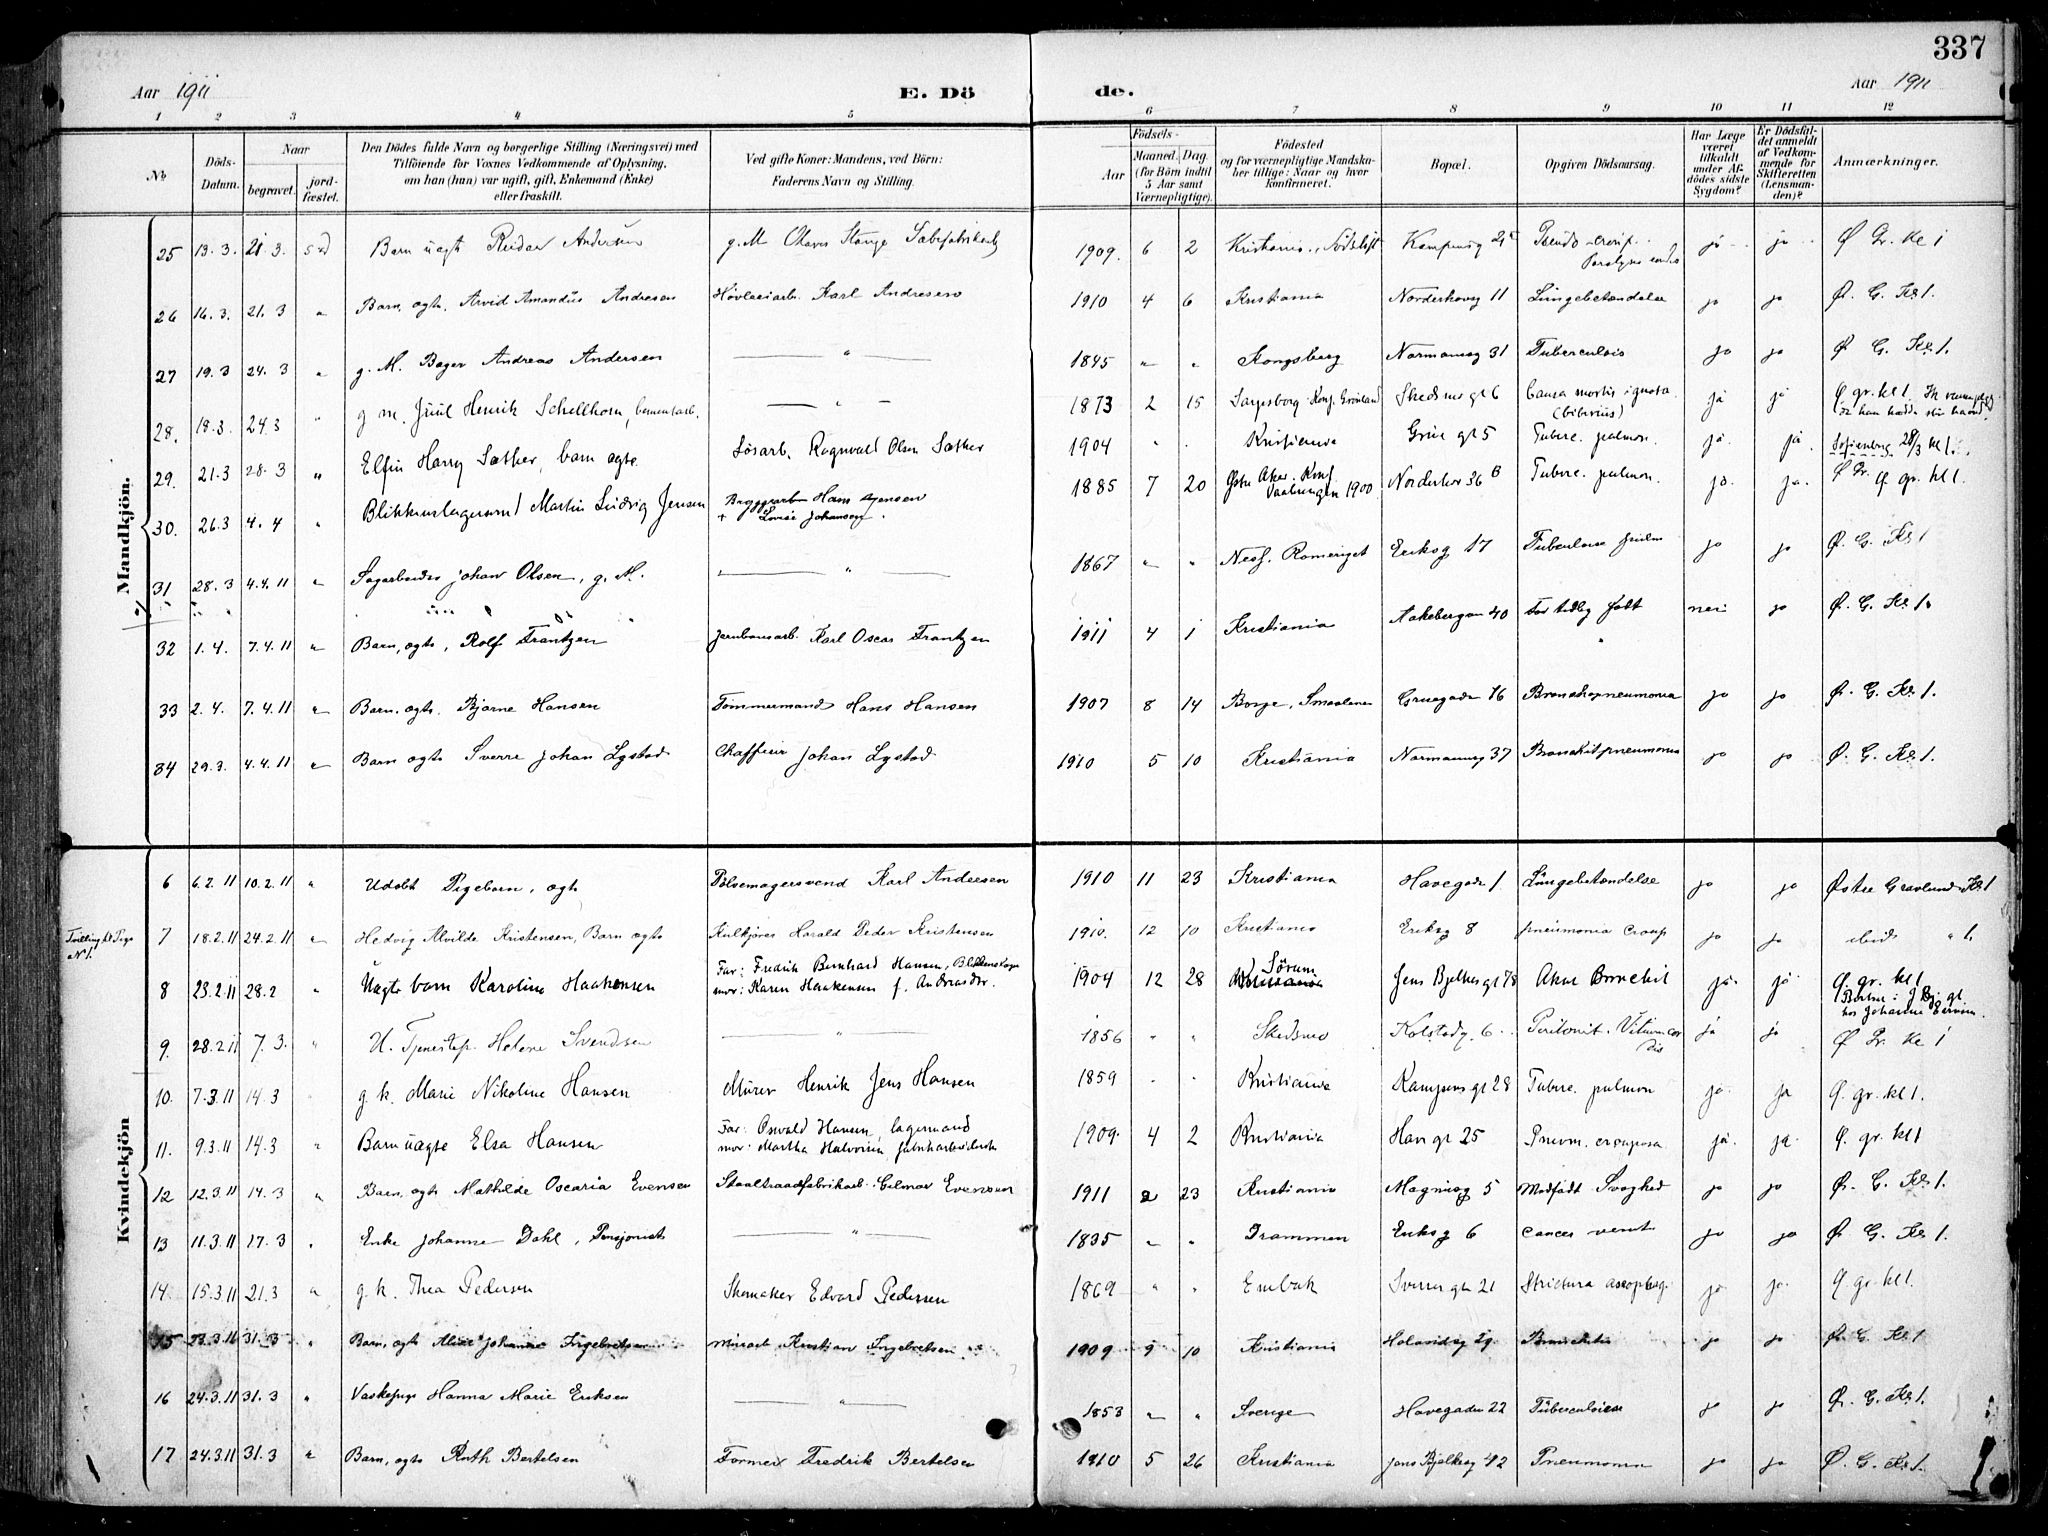 337
Aar 1911 E. Dö de. Aar 1911
1 2 3 4 5 6 7 8 9 10 11 12
No. Döds-Datum. Naar begravet. jordfæstet. Den Dödes fulde Navn og borgerlige Stilling (Næringsvei) med Tilföiende for Voxnes Vedkommende af Oplysning, om han (hun) var ugift, gift, Enkemand (Enke) eller fraskilt. Ved gifte Koner: Mandens, ved Börn: Faderens Navn og Stilling. Födsels- Aar Maaned. Dag. (for Börn indtil 5 Aar samt Værnepligtige). Födested og for værnepligtige Mandskaber tillige: Naar og hvor konfirmeret. Bopæl. Opgiven Dödsaarsag. Har Læge været tilkaldt under Afdödes sidste Sygdom? Er Dödsfaldet anmeldt af Vedkommende for Skifteretten (Lensmanden)? Anmærkninger.
Mandkjön.
25 13.3. 21.3. Barn uægt Reidar Andersen g. M. Stange Sæbefabrikarb 1909. 6 2 Kristiania, Kampensg Pseudo-croup. ja ja Ø Gr. kl 1
26 16.3. 21.3 " Barn, ægte. Arvid Amandus Andresen Høvleriarb. Karl Andresen 1910 4 6 Kristiania Norderhovsg 11 Lungebetændelse ja ja Ø. G. Kl 1.
27 19.3 24.3 " g. M. Bager Andreas Andersen — " — 1845 " " Kongsberg Normansg 31 Tuberculosis ja ja Ø G. Kl 1.
28. 18.3. 24.3 " g. m. Juul Henrik Schellhorn, cementarb. — " — 1873 2 15 Sarpsborg Konf. Grønland Skedsmogt 6 Causa mortis ignota ja ja Ø gr. kl 1.
29. 21.3 28.3 " Elfin Harry Sæther, barn ægte Løsarb. Ragnvald Olsen Sæther 1904 " . Kristiania Grüe gt 5 Tuberc. pulmon. ja. ja. Sofienberg 28/3 kl 1. Ø Gr.
30. 26.3 4.4 " Blikkenslagersvend Martin Ludvig Jensen Bryggearb Hans Jensen + Lovise Johansen. 1885 7 20 Østre Aker. Konf. Vaalerengen 1900 Norderhov 36 B Tuberc. pulmon. ja. ja. Ø gr. kl 1.
31 28.3 4.4.11 " Sagarbeider Johan Olsen, g. M. — " — 1867 " " Nes, Romeriget Eriksg 17 Tuberculose pulm ja ja Ø. G. Kl 1
32 1.4. 7.4.11 " Barn, ægte, Rolf Frantzen Jernbanearb. Karl Oscar Frantzen 1911 4 1 Kristiania Aakebergv 40 For tidlig født nei ja Ø. G. Kl 1.
33 2.4. 7.4.11 " Barn. ægte. Bjarne Hansen Tømmermand Hans Hansen 1907 8 14 Borge, Smaalenene Gruegade 16 Bronchopneumonia ja ja Ø. G. Kl 1.
34 29.3. 4.4.11 " Barn ægte Sverre Johan Lystad Chaffeur Johan Lystad 1910 5 10 Kristiania Normannsg 37 ja ja Ø. G. Kl 1.
Kvindekjön
6 6.2.11 10.2.11 " Udøbt Pigebarn, ægte Pølsemagersvend Karl Andresen 1910 11 23 Kristiania Havegade 1. Lungebetændelse ja ja Østre Gravlund Kl 1
7 18.2.11 24.2.11 " Hedvig Alvilde Kristensen, Barn ægte Kulkjører Harald Peder Kristensen 1910. 12 10 Kristiania Eriksg 8 pneumonia croup ja ja ibid " 1.
8 23.2.11 28.2 " Uægte barn Karoline Haakensen Far: Fredrik Bernhard Hansen, mor: Karen Haakensen f. Andreasdtr. 1904 12 28 Sørum Jens Bjelkes gt 78 Akut Bronchit ja. ja. Ø. gr. kl 1
9. 28.2.11 7.3. " U. Tjenestep. Helene Svendsen — " — 1856 " " Skedsmo Kolstadg. 6. Peritonit. Vitium cordis ja ja Ø Gr. kl 1
10. 7.3.11 14.3 g. k. Marie Nikoline Hansen Murer Henrik Jens Hansen 1859 Kristiania Kampens gt 28 Tuberc. pulmon ja. ja Ø. gr. kl 1.
11. 9.3.11 14.3 " Barn uægte Elsa Hansen Far: Osvald Hansen, lagermand mor: Martha Halvorsen, 1909. 4 2 Kristiania Hav gt 25 Pneum. crouposa ja. ja. Ø. gr. kl 1
12 12.3.11 14.3 " Barn, ægte Mathilde Oscaria Evensen Staaltraadfabrikarb. Gilmar Evensen 1911 2 23 Kristiania Magnusg 5 Medfødt Svaghed ja ja Ø. G. Kl 1.
13 11.3.11 17.3 " Enke Johanne Dahl, Pensjonist — " — 1835 " " Drammen Eriksg 6 Cancer vent ja ja Ø. G. Kl 1.
14. 15.3.11 21.3 " g. k. Thea Pedersen Skomaker Edvard Pedersen 1869 " " Enebak Sverres gt 21 Strictura ja. ja. Ø gr. kl 1.
15 23.3.11 31.3 " Barn, ægte Johanne Ingebretsen Murarb Kristian Ingebretsen 1909 9 10 Kristiania Bronchitis ja ja Ø. G. Kl 1
16 24.3.11 31.3 " Vaskepige Hanna Marie Eriksen — " — 1853 " " Sverige Havegaden 22 Tuberculose ja ja Ø. G. Kl 1.
17 24.3.11 31.3 " Barn, ægte Ruth Bertelsen Former Fredrik Bertelsen 1910 5 26 Kristiania Jens Bjelkesg 42 Pneumonia ja ja Ø. G. Kl 1.